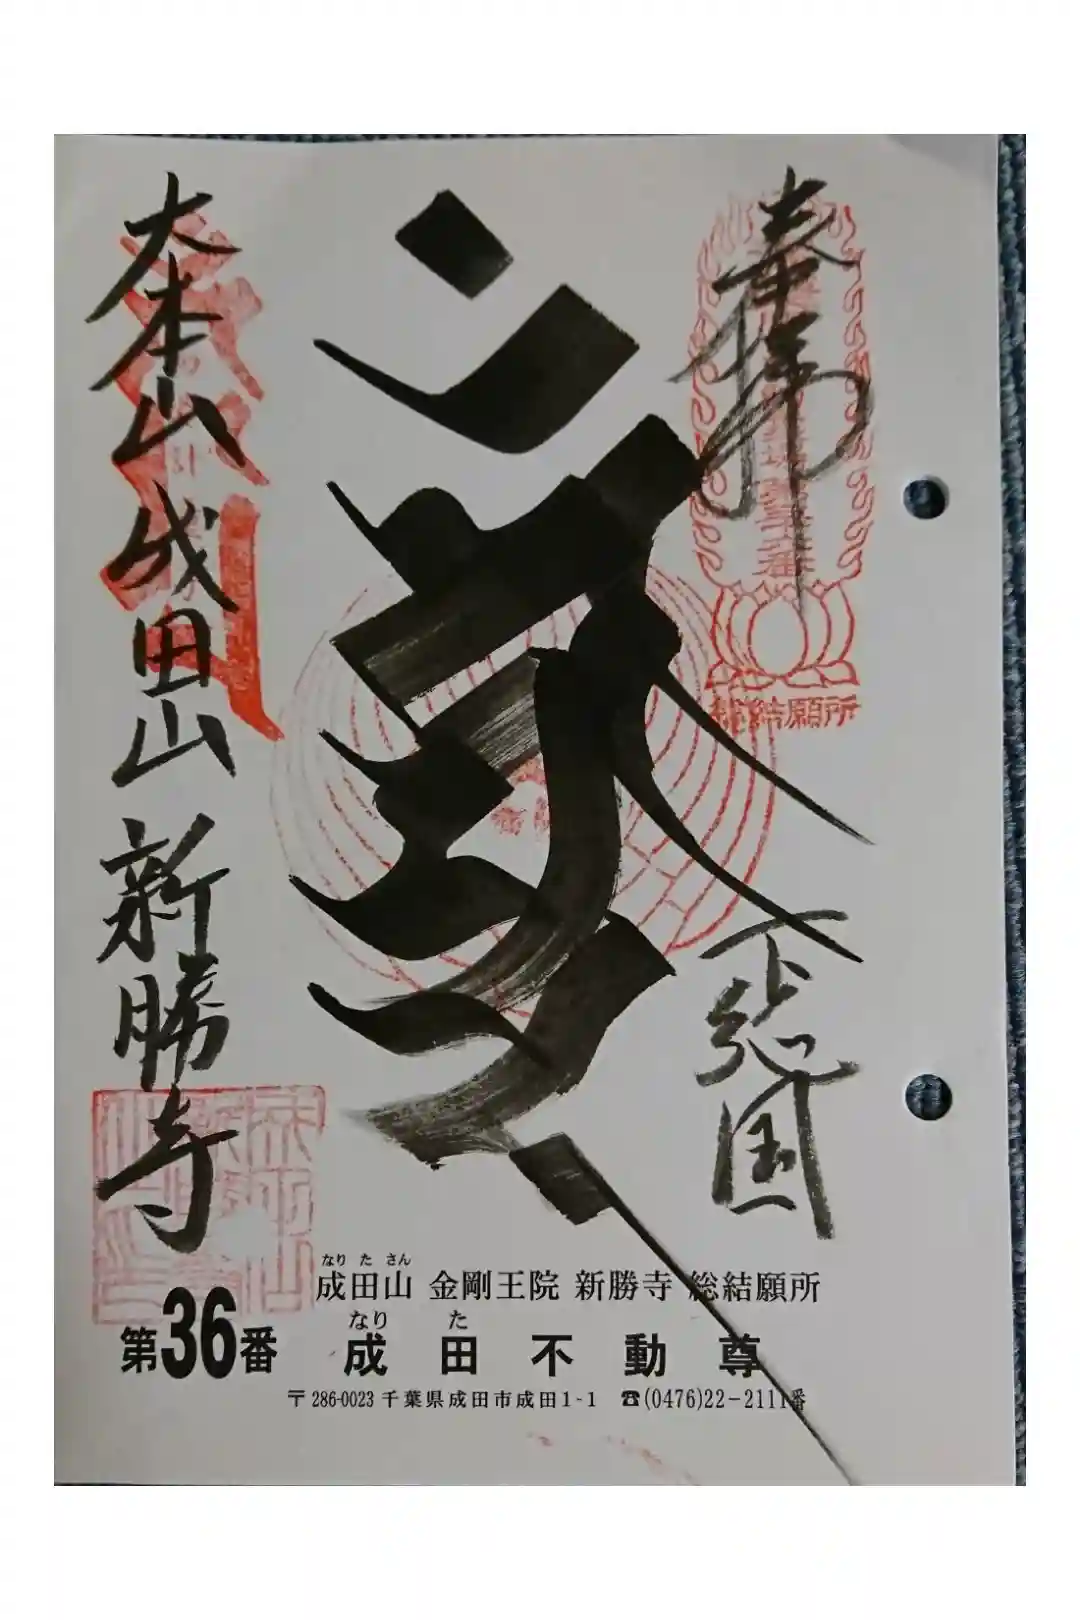 奉拝
総結願所
下総国
大本山成田山新勝寺
なり た さん
成田山 金剛王院 新勝寺 総結願所
第36番
なり た
成田不動尊
〒286-0023 千葉県成田市成田1-1 ☎(0476)22-2111番